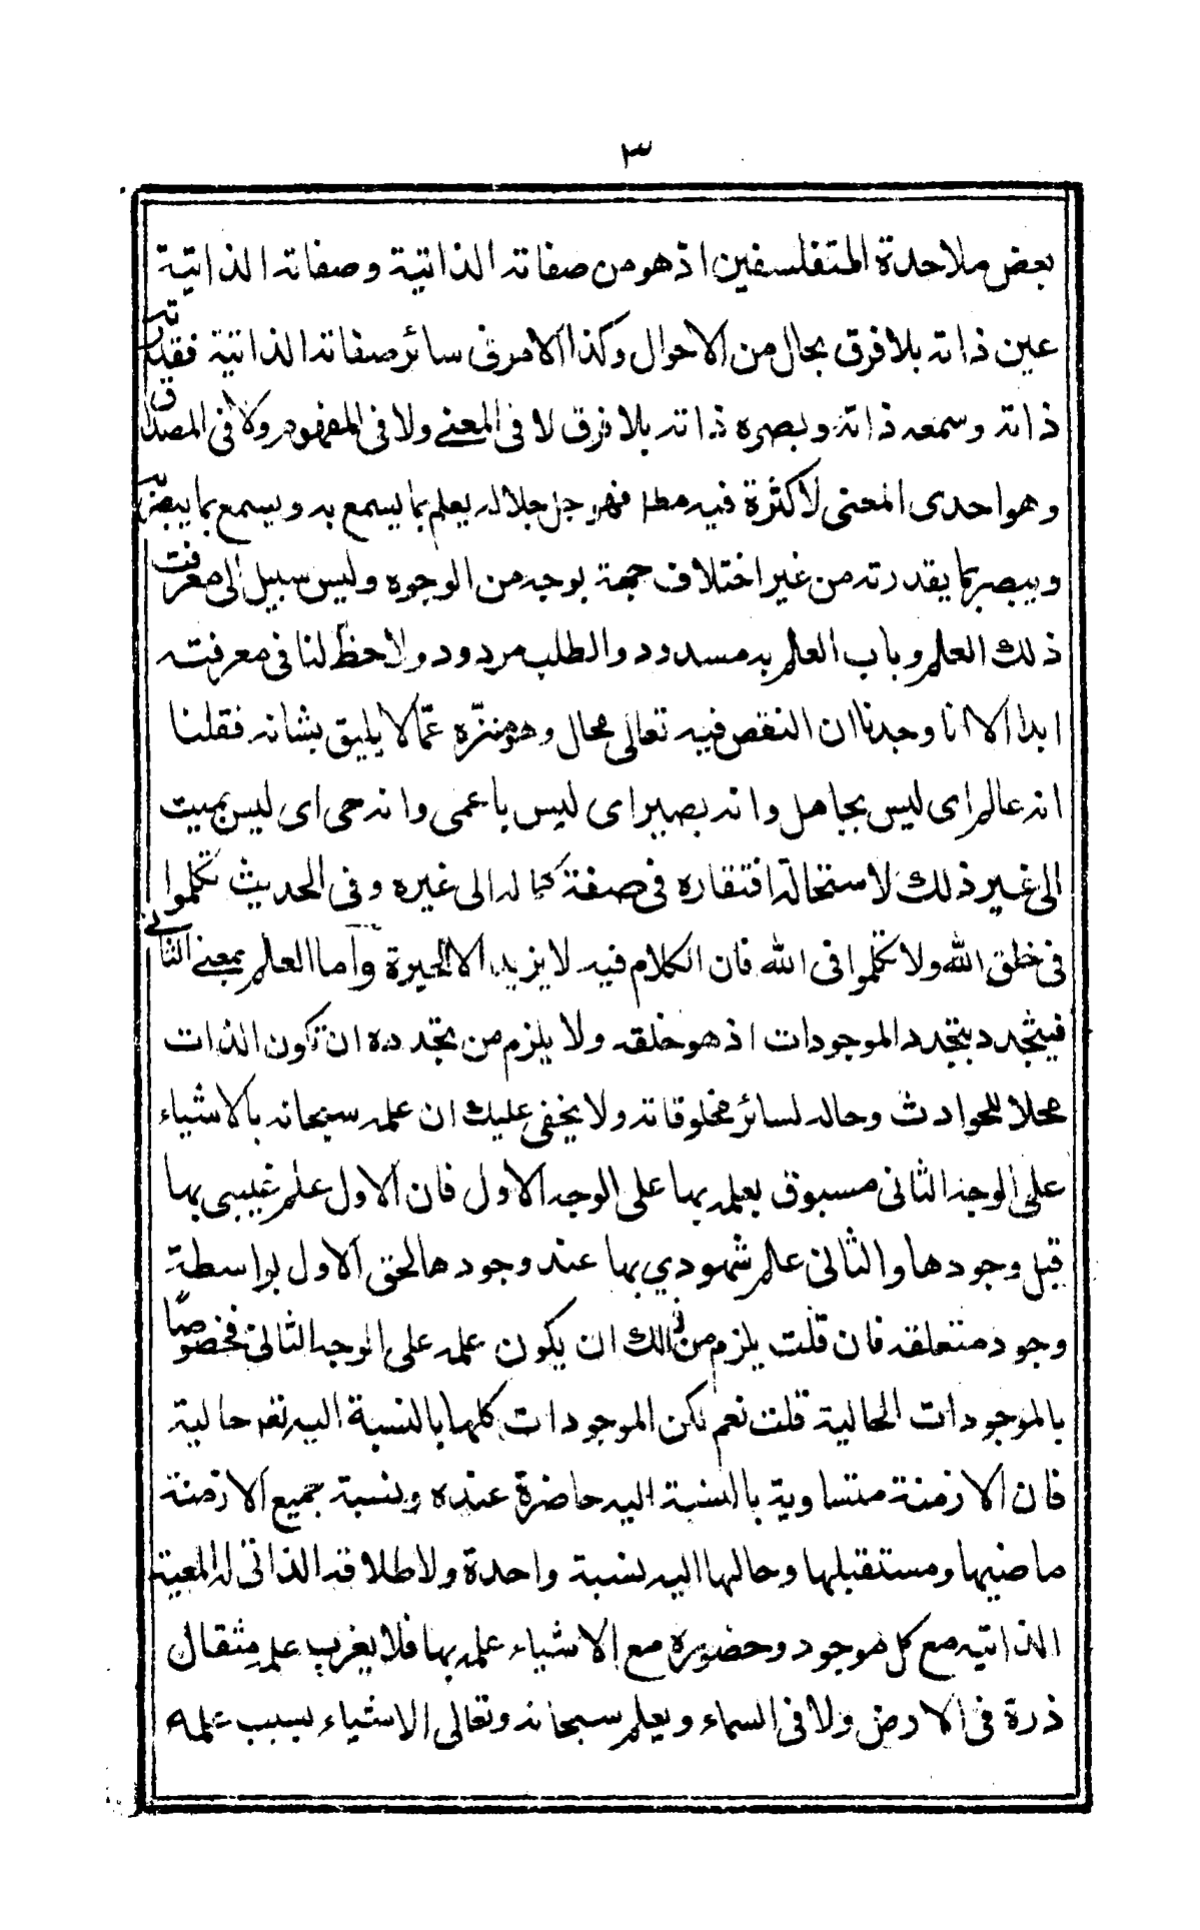 ٣
بعض ملاحدة المتفلسفين اذ هو من صفاته الذاتية وصفاته الذاتية
عين ذاته بلا فرق بحال من الاحوال وكذا الامر فى سائر صفاته الذاتية فقدرته
ذاته وسمعه ذاته وبصره ذاته بلا فرق لا فى المعنى ولا فى المفهوم ولا فى المصداق
وهو احدى المعنى لا كثرة فيه مط فهو جل جلاله يعلم بما يسمع به ويسمع بما يبصر به
ويبصر بما يقدر به من غير اختلاف جهة بوجه من الوجوه وليس سبيل الى معرفة
ذلك العلم وباب العلم به مسدود والطلب مردود ولا حظ لنا فى معرفته
ابدا الا انا وجدنا ان النقص فيه تعالى محال وهو منزّه عمّا لا يليق بشانه فقلنا
انه عالم اى ليس بجاهل وانه بصير اى ليس باعمى وانه حى اى ليس بميت
الى غير ذلك لاستحالة افتقاره فى صفة كماله الى غيره وفى الحديث تكلموا
فى خلق الله ولا تكلموا فى الله فان الكلام فيه لا يزيد الا الحيرة وأما العلم بمعنى الثانى
فيتجدد بتجدد الموجودات اذ هو خلقه ولا يلزم من تجدده ان تكون الذات
محلا للحوادث وحاله لسائر مخلوقاته ولا يخفى عليك ان علمه سبحانه بالاشياء
على الوجه الثانى مسبوق بعلمه بها على الوجه الاول فان الاول علم غيبى بها
قبل وجودها والثانى علم شهودي بها عند وجودها لحق الاول بواسطة
وجود متعلقه فان قلت يلزم من ذلك ان يكون علمه على الوجه الثانى مخصوصًا
بالموجودات الحالية قلت نعم لكن الموجودات كلها بالنسبة اليه تعـ حالية
فان الازمنة متساوية بالنسبة اليه حاضرة عنده ونسبة جميع الازمنة
ماضيها ومستقبلها وحالها اليه نسبة واحدة ولاطلاقه الذاتى له المعية
الذاتيه مع كل موجود وحضوره مع الاشياء علمه بها فلا يغرب علمه مثقال
ذرة فى الارض ولا فى السماء ويعلم سبحانه وتعالى الاشياء بسبب علمه